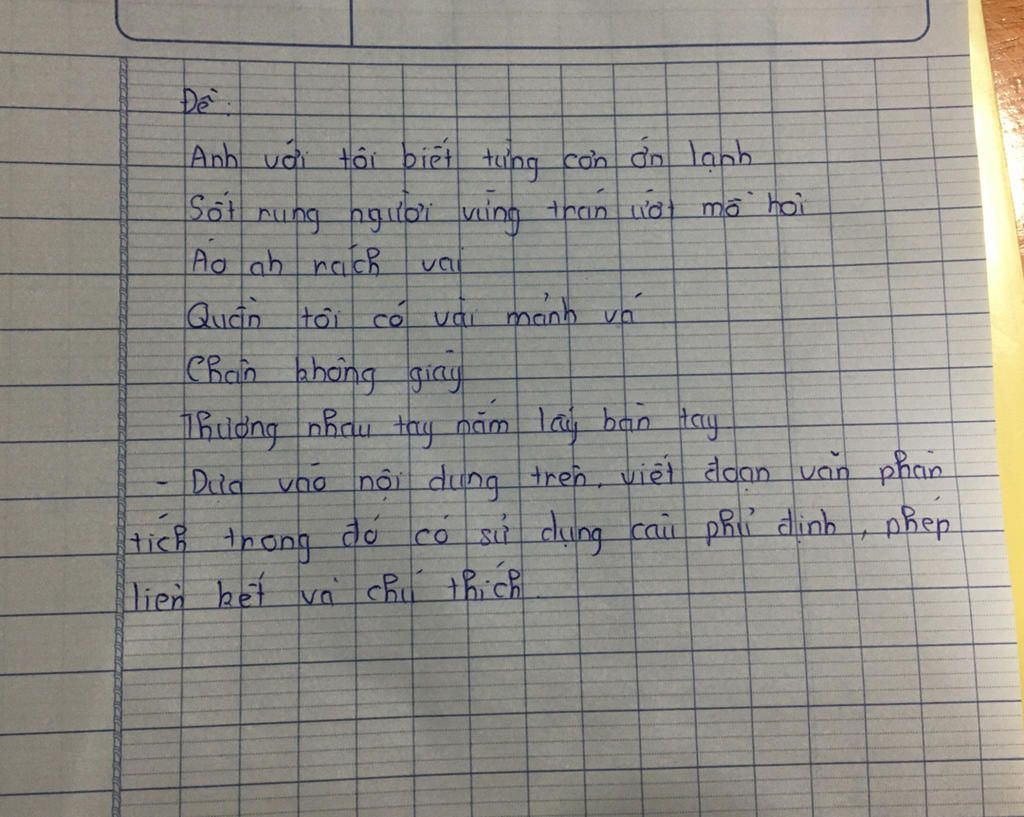 Đề:
Anh với tôi biết từng cơn ớn lạnh
Sốt rung người vừng trán ướt mồ hôi
Áo ah rách vai
Quần tôi có vài mảnh vá
Chân không giày
Thương nhau tay nắm lấy bàn tay
- Dựa vào nội dung trên, viết đoạn văn phân
tích trong đó có sử dụng câu phủ định, phép
liên kết và chú thích.